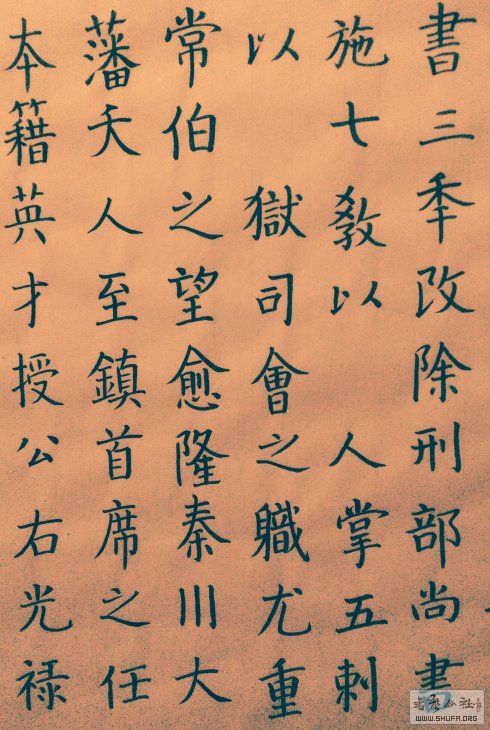 書三秊改除刑部尚書
施七教以人掌五刺
以獄司會之職尤重
常伯之望愈隆秦川大
藩夭人至鎮首席之任
本籍英才授公右光禄
WWW.SHUFA.ORG